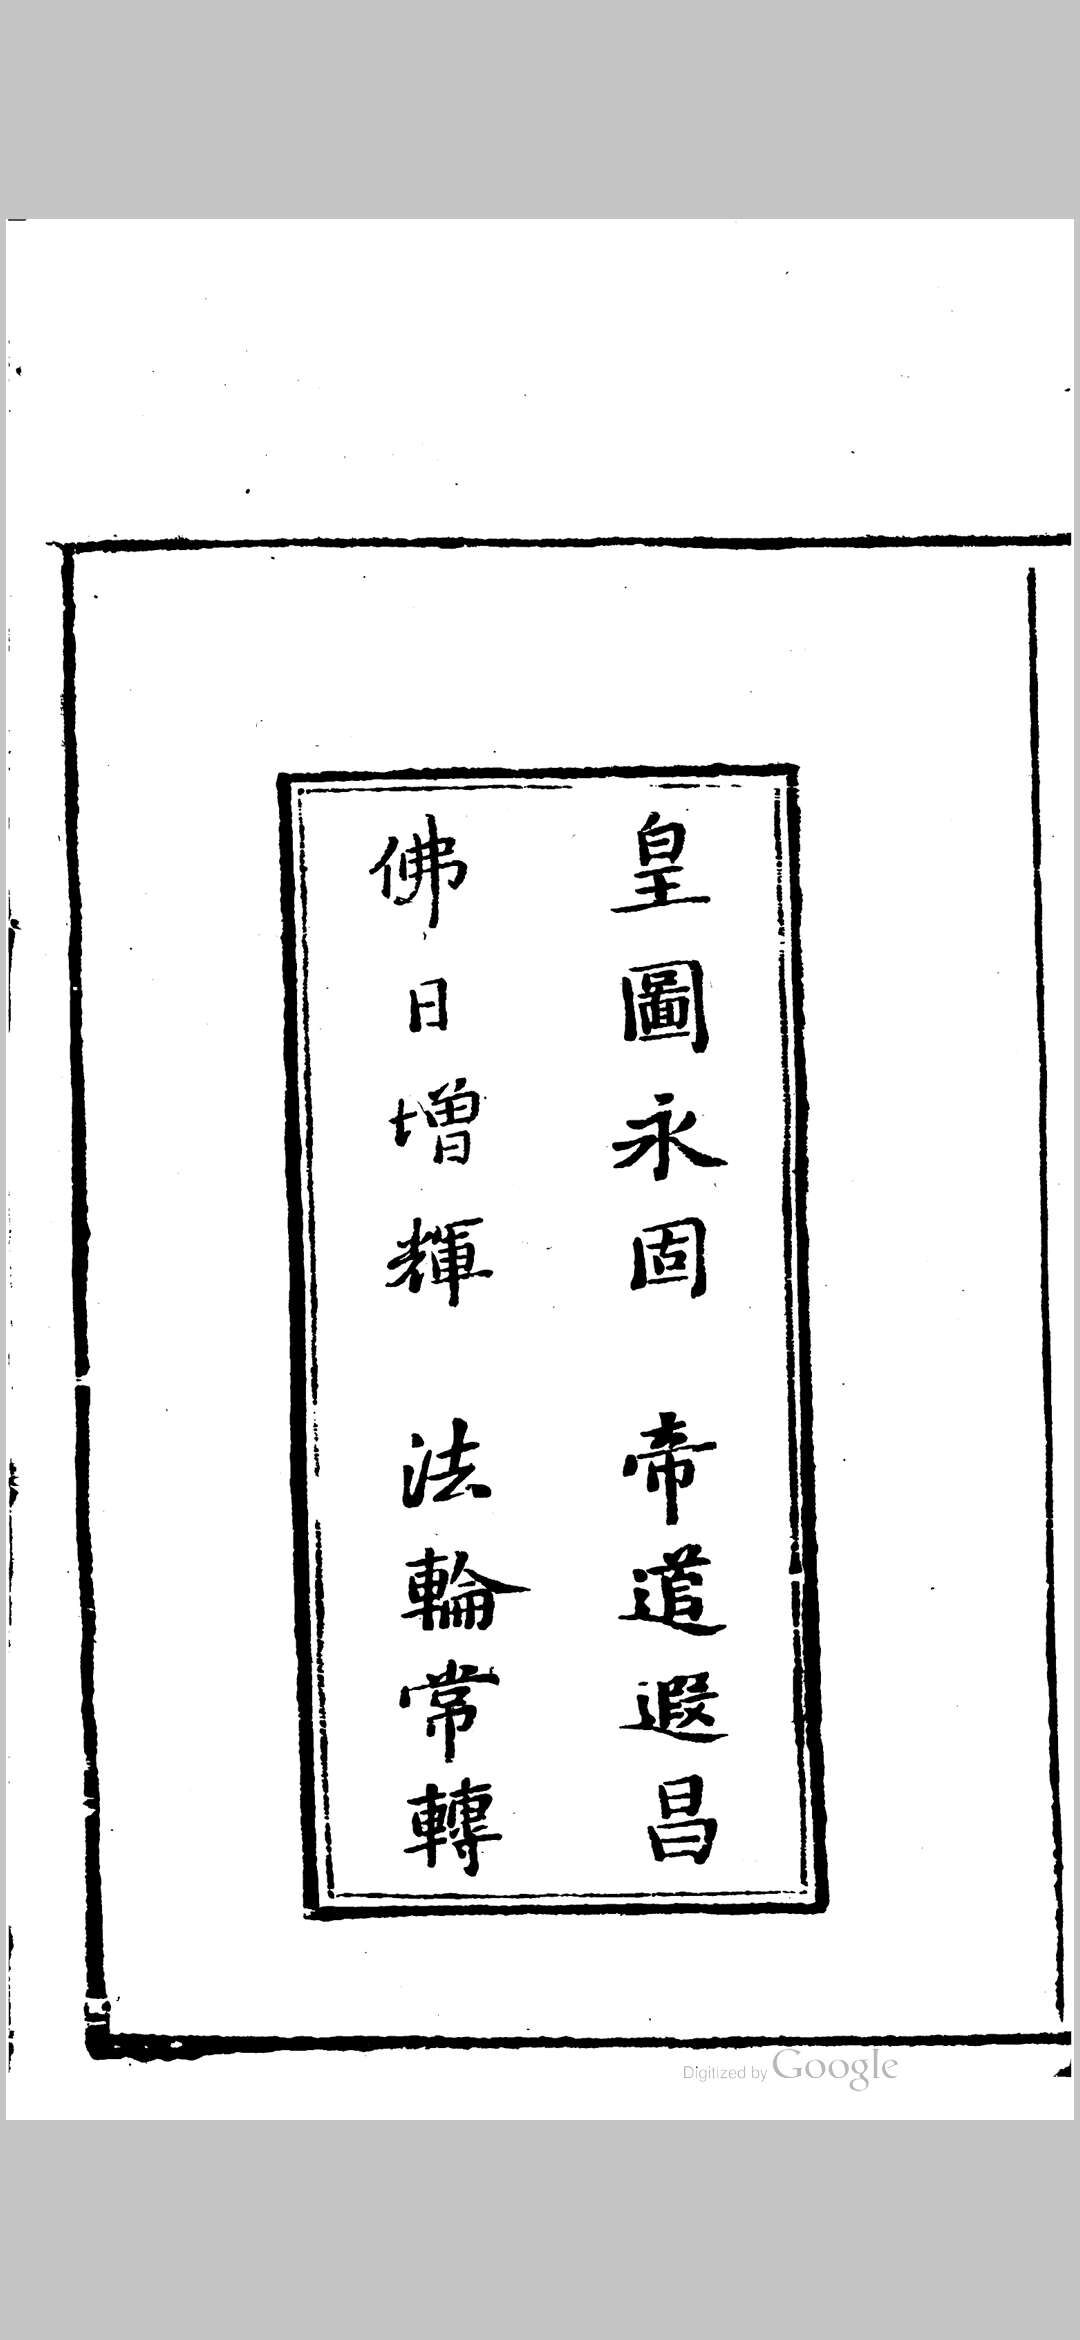 皇圖永固　帝道遐昌
佛日增輝　法輪常轉
Digitized by Google